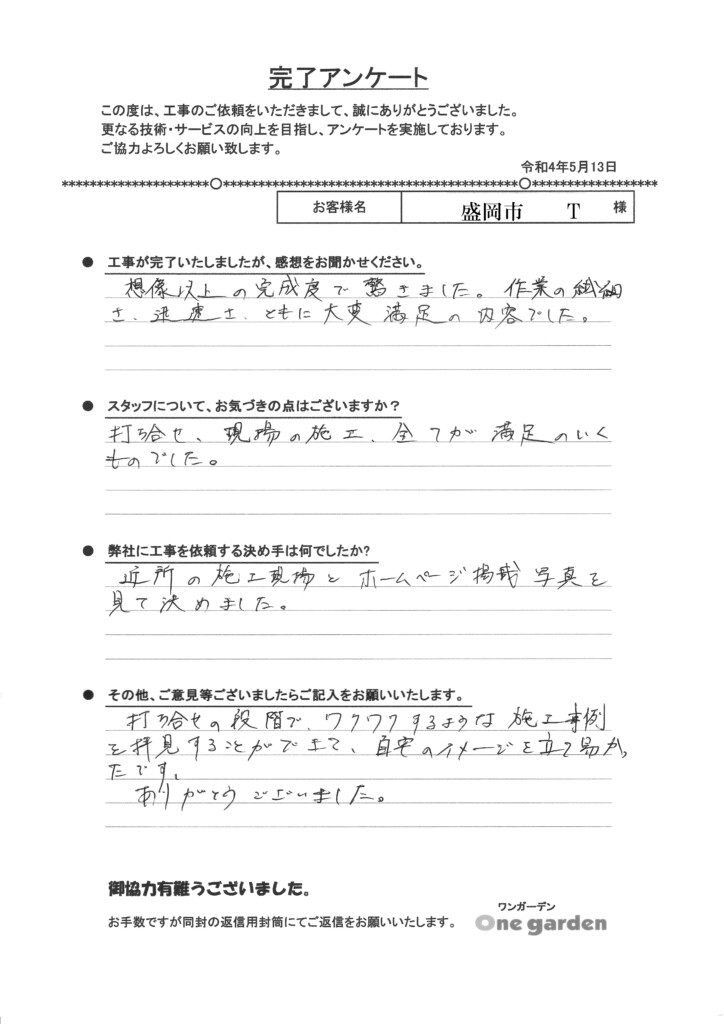 完了アンケート
この度は、工事のご依頼をいただきまして、誠にありがとうございました。
更なる技術・サービスの向上を目指し、アンケートを実施しております。
ご協力よろしくお願い致します。
令和4年5月13日
お客様名 盛岡市 T 様
● 工事が完了いたしましたが、感想をお聞かせください。
想像以上の完成度で驚きました。作業の繊細
さ、迅速さ、ともに大変満足の内容でした。
● スタッフについて、お気づきの点はございますか？
打ち合せ、現場の施工、全てが満足のいく
ものでした。
● 弊社に工事を依頼する決め手は何でしたか?
近所の施工現場とホームページ掲載写真を
見て決めました。
● その他、ご意見等ございましたらご記入をお願いいたします。
打ち合せの段階で、ワクワクするような施工事例
を拝見することができて、自宅のイメージを立て易かっ
たです。
ありがとうございました。
御協力有難うございました。
お手数ですが同封の返信用封筒にてご返信をお願いいたします。
ワンガーデン
One garden